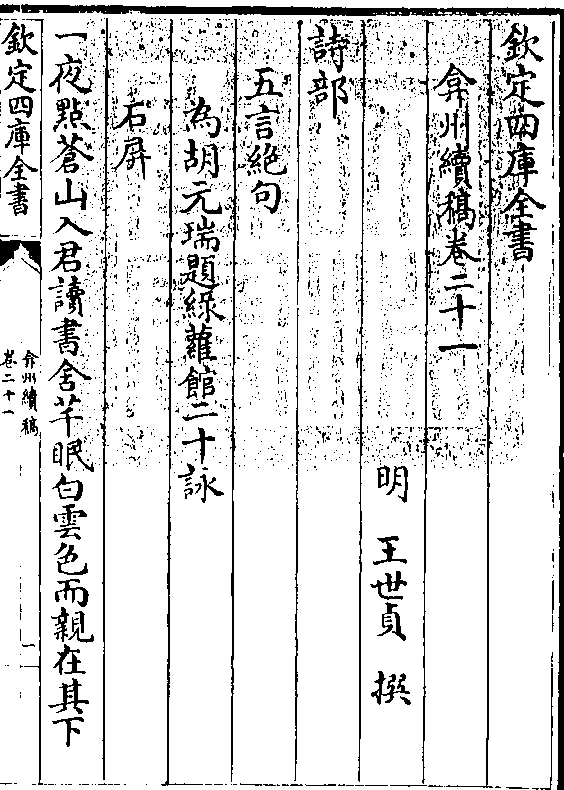 欽定四庫全書
弇州續稿卷二十一
明　王世貞　撰
詩部
五言絕句
為胡元瑞題綠蘿館二十詠
石屏
一夜點蒼山入君讀書舍芊眠白雲色而親在其下
欽定四庫全書
弇州續稿
卷二十一
一